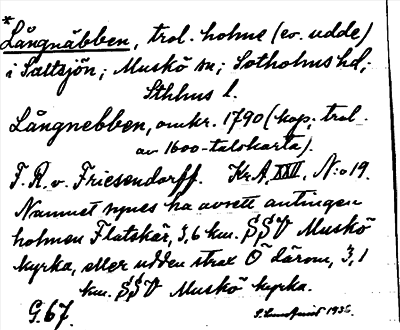 *
Långnäbben, trol. holme (ev. udde)
i Saltsjön; Muskö sn; Sotholms hd;
Sthlms l.
Långnebben, omkr. 1790 (kop. trol.
av 1600-talskarta).
F. R. v. Friesendorff. Kr.A. XXII, N:o 19.
Namnet synes ha avsett antingen
holmen Flatskär, 3,6 km. SSV Muskö
kyrka, eller udden strax Ö därom, 3,1
km. SSV Muskö kyrka.
G. 67. 1936.